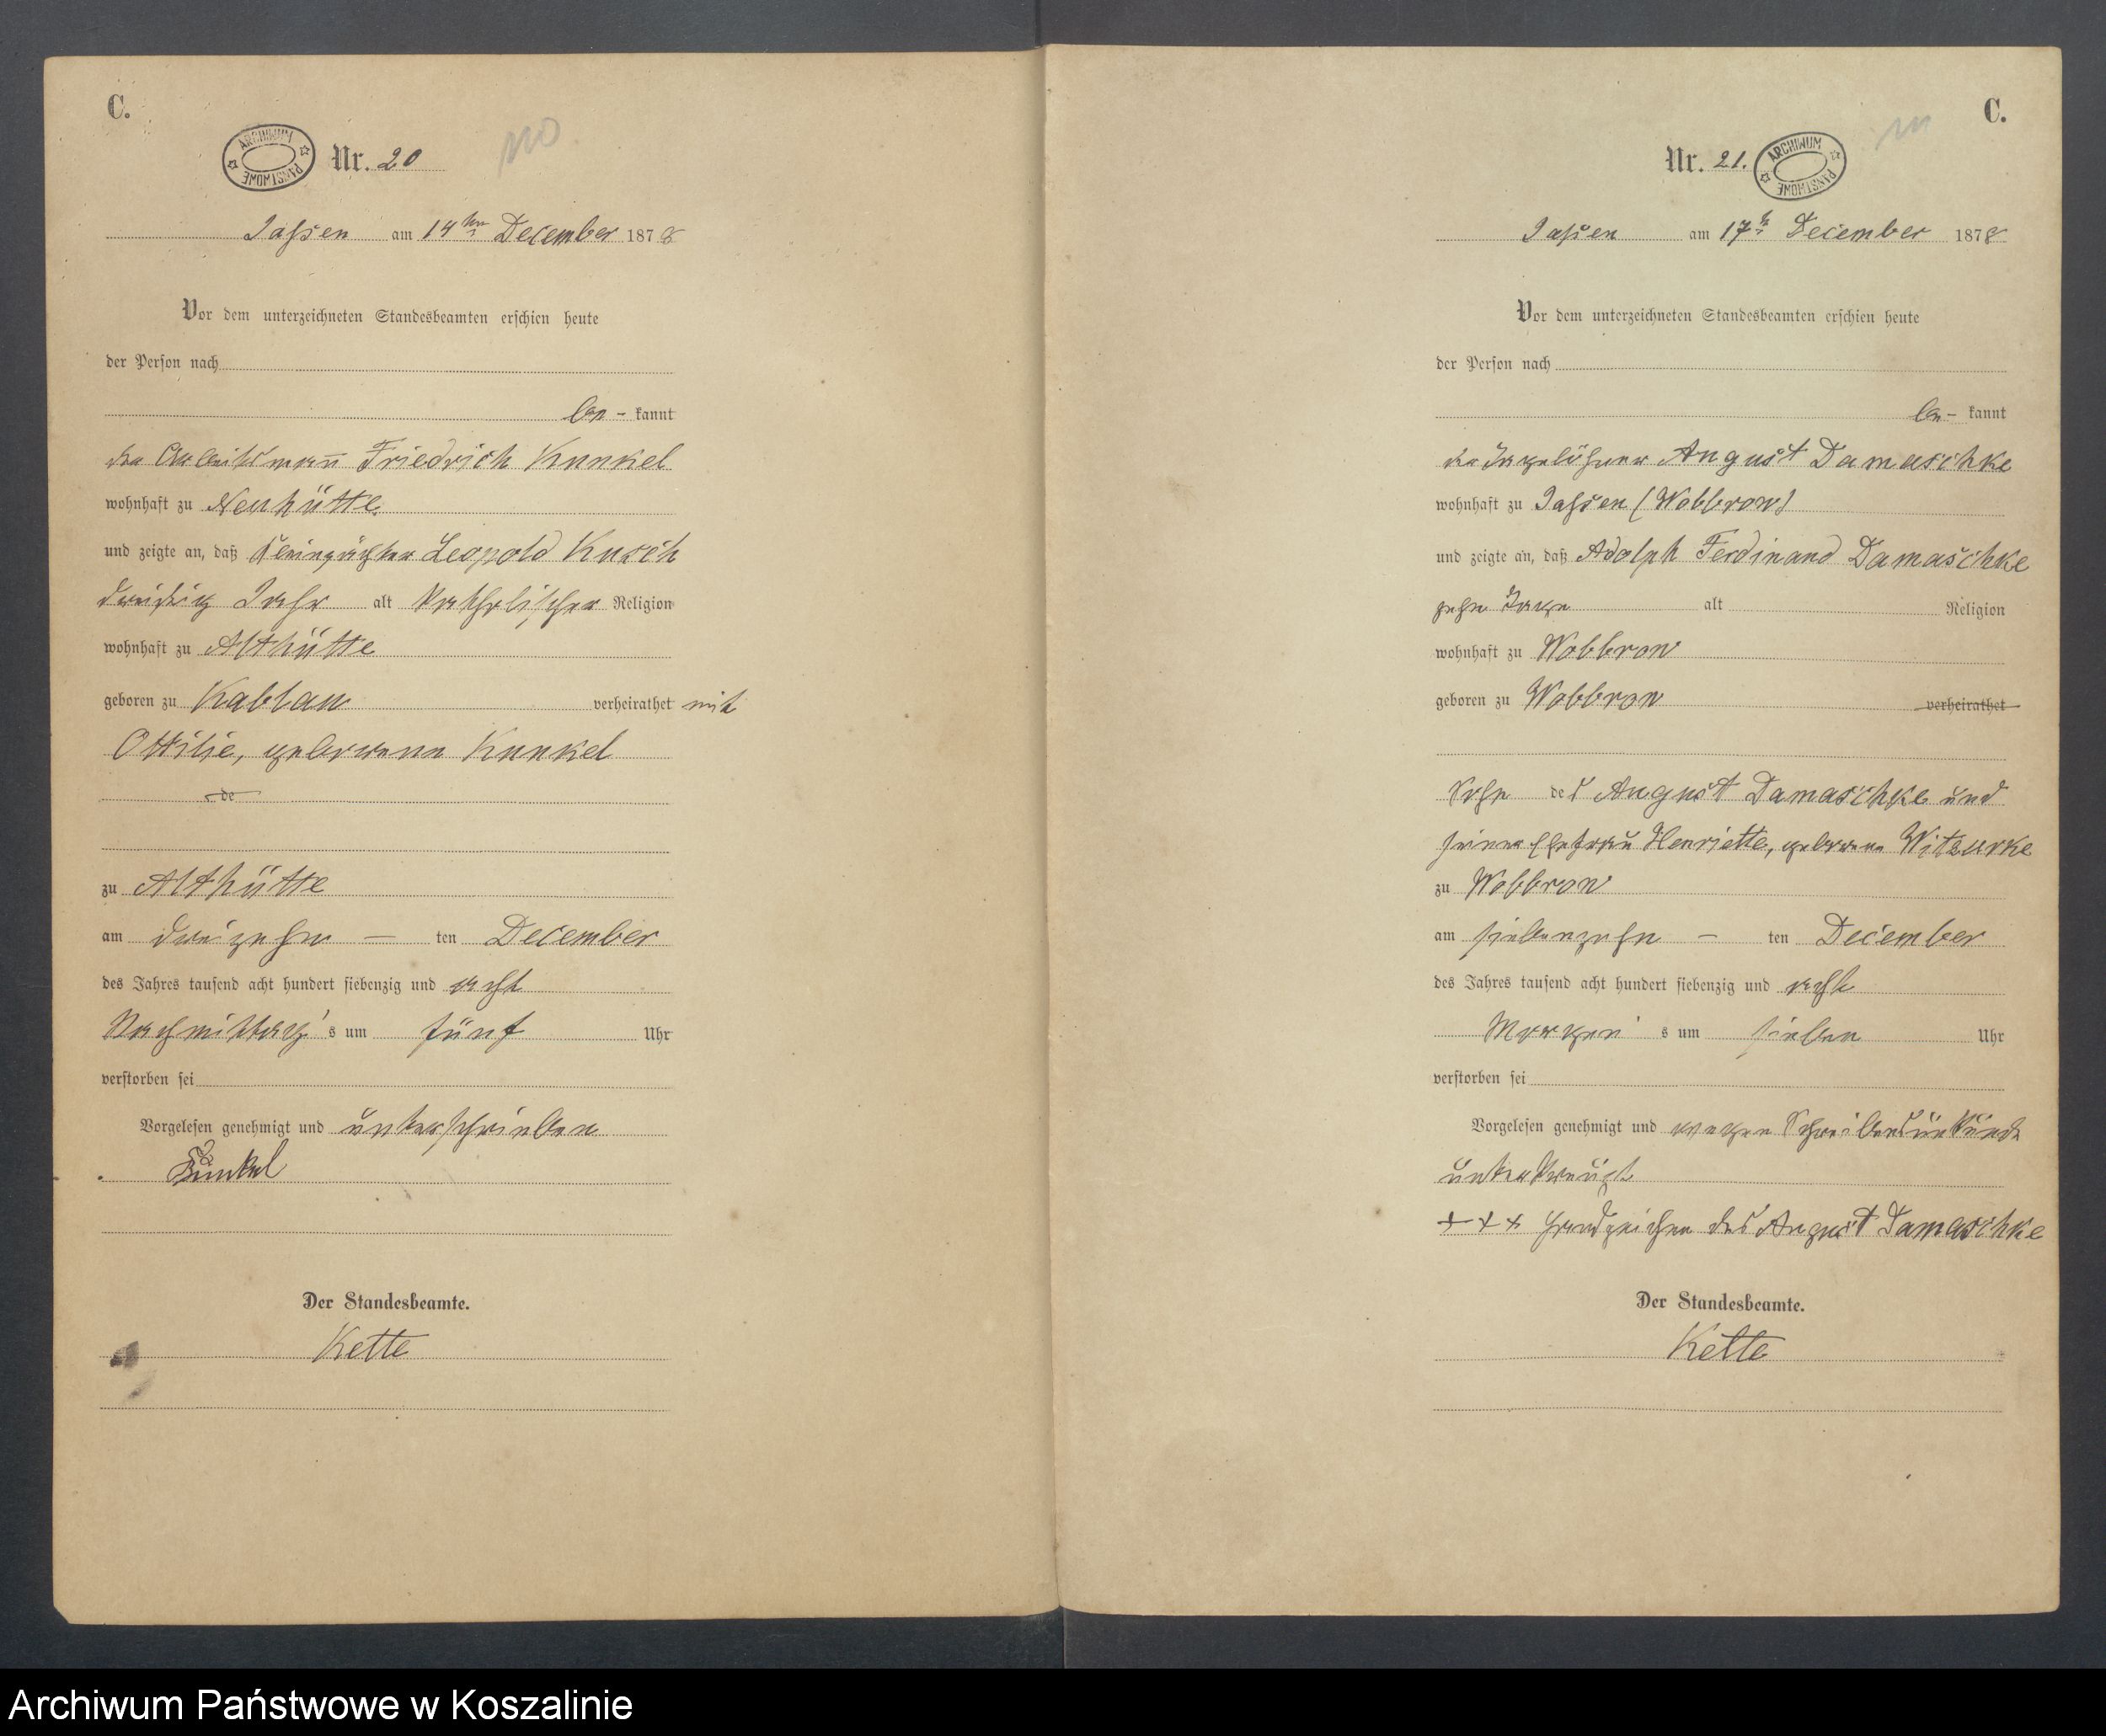 C.
ARCHIWUM PAŃSTWOWE
Nr. 20
110
Jassen am 14ten December 1878
Vor dem unterzeichneten Standesbeamten erschien heute
der Person nach
be- kannt
der Arbeitsmann Friedrich Kunkel
wohnhaft zu Neuhütte
und zeigte an, daß Leopold Kusch
dreißig Jahr alt katholischer Religion
wohnhaft zu Althütte
geboren zu Kablau verheirathet mit
Ottilie, geborenen Kunkel
de
zu Althütte
am dreizehn – ten December
des Jahres tausend acht hundert siebenzig und acht
Nachmittag's um fünf Uhr
verstorben sei
Vorgelesen genehmigt und unterschrieben
Kunkel
Der Standesbeamte.
Kette
C.
Nr. 21.
ARCHIWUM PAŃSTWOWE
111
Jassen am 17t December 1878
Vor dem unterzeichneten Standesbeamten erschien heute
der Person nach
be- kannt
der Tagelöhner August Damaschke
wohnhaft zu Jassen (Wobbrow)
und zeigte an, daß Adolph Ferdinand Damaschke
zehn Tage alt Religion
wohnhaft zu Wobbrow
geboren zu Wobbrow verheirathet
Sohn des August Damaschke und
seiner Ehefrau Henriette, geborenen Witzurke
zu Wobbrow
am siebenzehn – ten December
des Jahres tausend acht hundert siebenzig und acht
Morgen's um sieben Uhr
verstorben sei
Vorgelesen genehmigt und wegen Schreibensunkunde
unterkreuzt
+++ Handzeichen des August Damaschke
Der Standesbeamte.
Kette
Archiwum Państwowe w Koszalinie